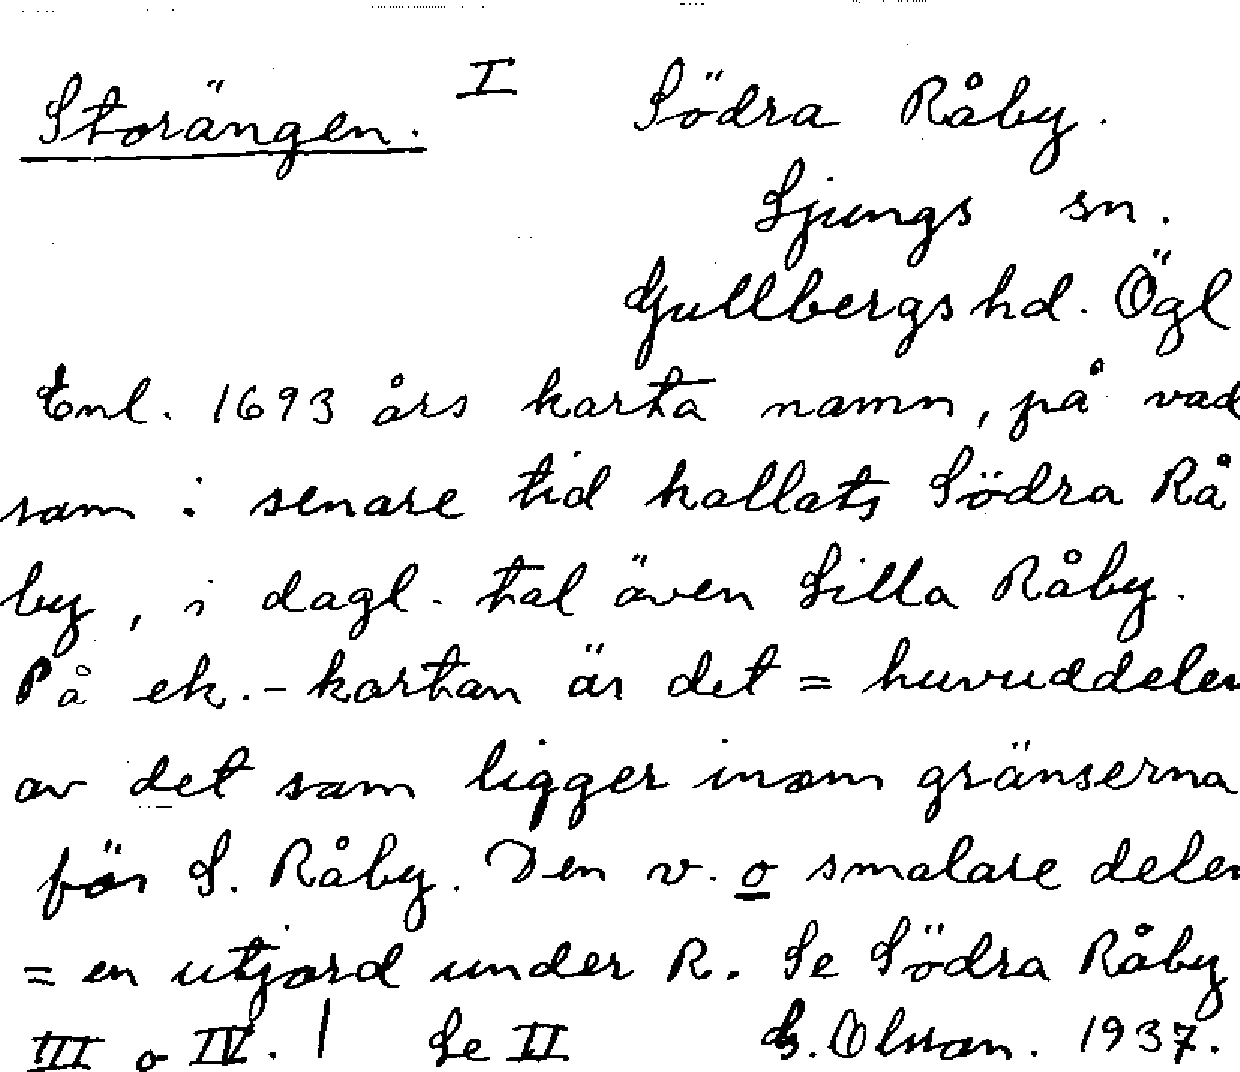 Storängen. I Södra Råby.
Ljungs sn.
Gullbergs hd. Ögl
Enl. 1693 års karta namn, på vad
som i senare tid kallats Södra Rå
by, i dagl. tal även Lilla Råby.
På ek.-kartan är det = huvuddelen
av det som ligger inom gränserna
för S. Råby. Den v. o smalare delen
= en utjord under R. Se Södra Råby
III o IV. | Se II G. Olsson. 1937.